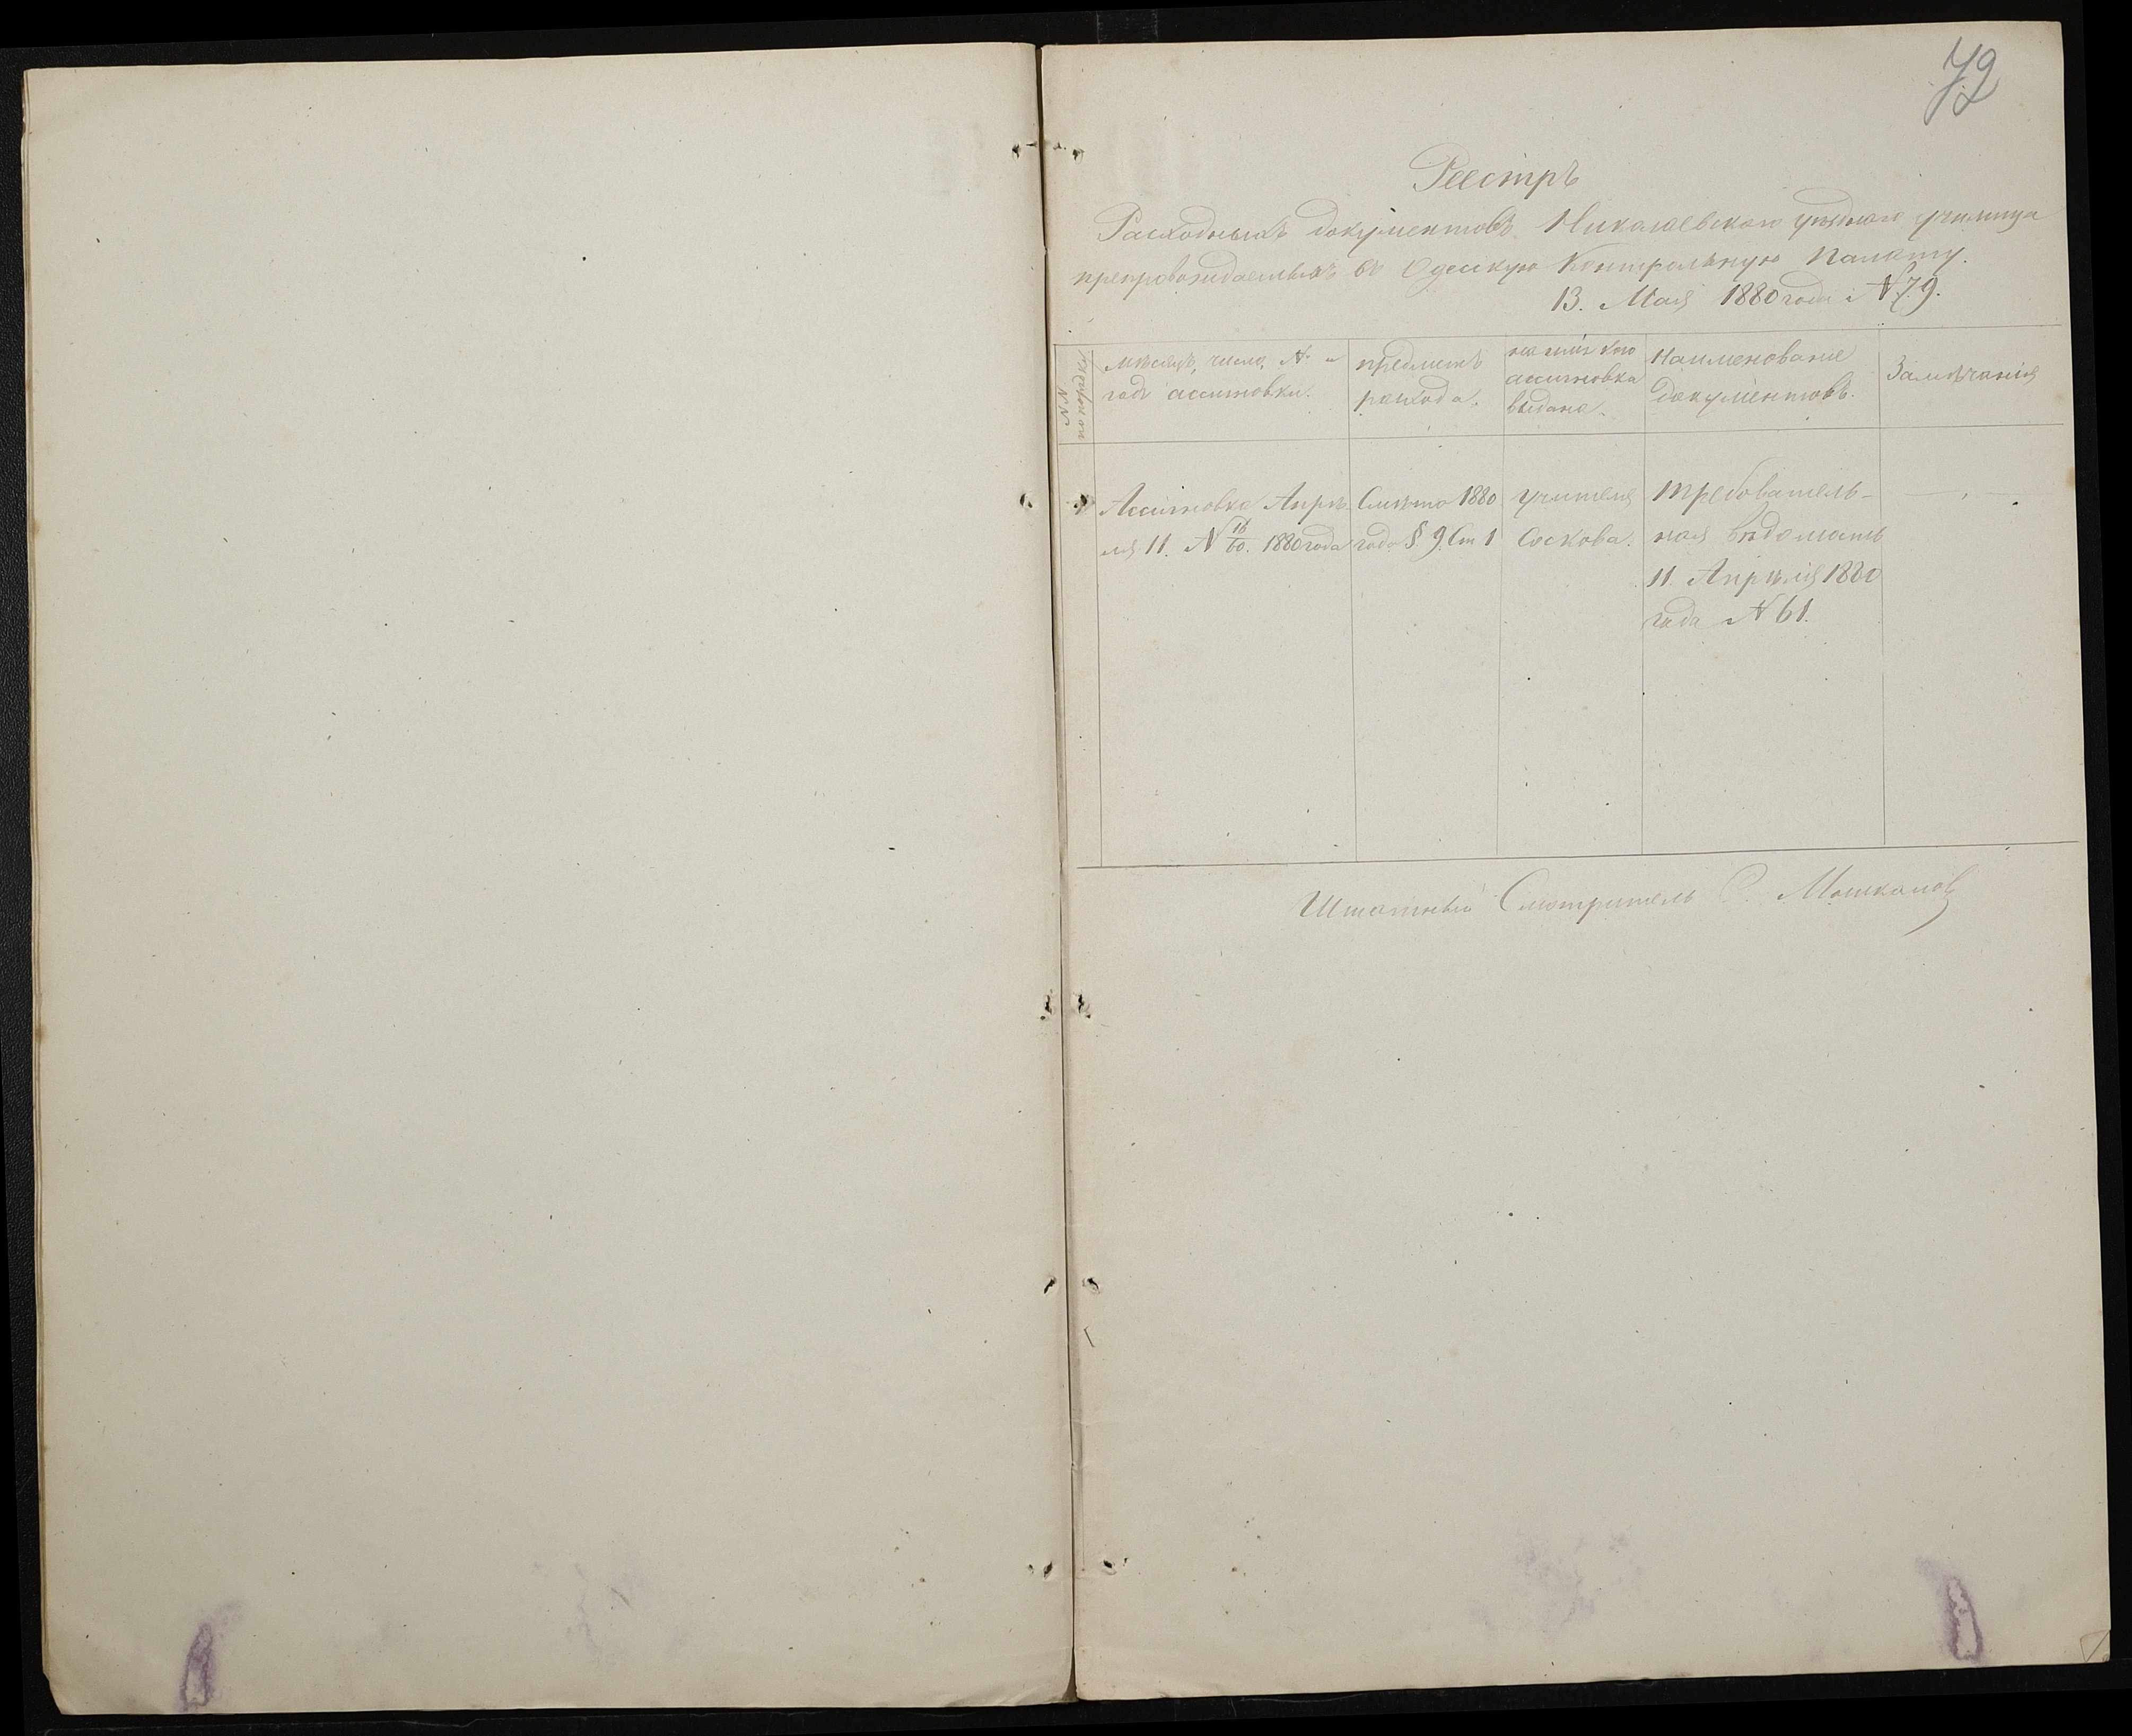 79
Реестръ
Расходныхъ документовъ Николаевскаго уѣзднаго училища
препровождаемыхъ въ Одесскую Контрольную Палату.
13. Мая 1880 года N 79.
NN по порядку
мѣсяцъ, число, N. и
годъ ассигновки.
предметъ
расхода.
на имя кого
ассигновка
выдана.
Наименованіе
документовъ.
Замѣчанія
Ассигновка Апрѣ-
ля 11. N 16/60. 1880 года
Смѣта 1880
года § 9. Ст 1
учителя
Соскова.
Требователь-
ная вѣдомость
11 Апрѣля 1880
года N 61.
Штатный Смотритель С.